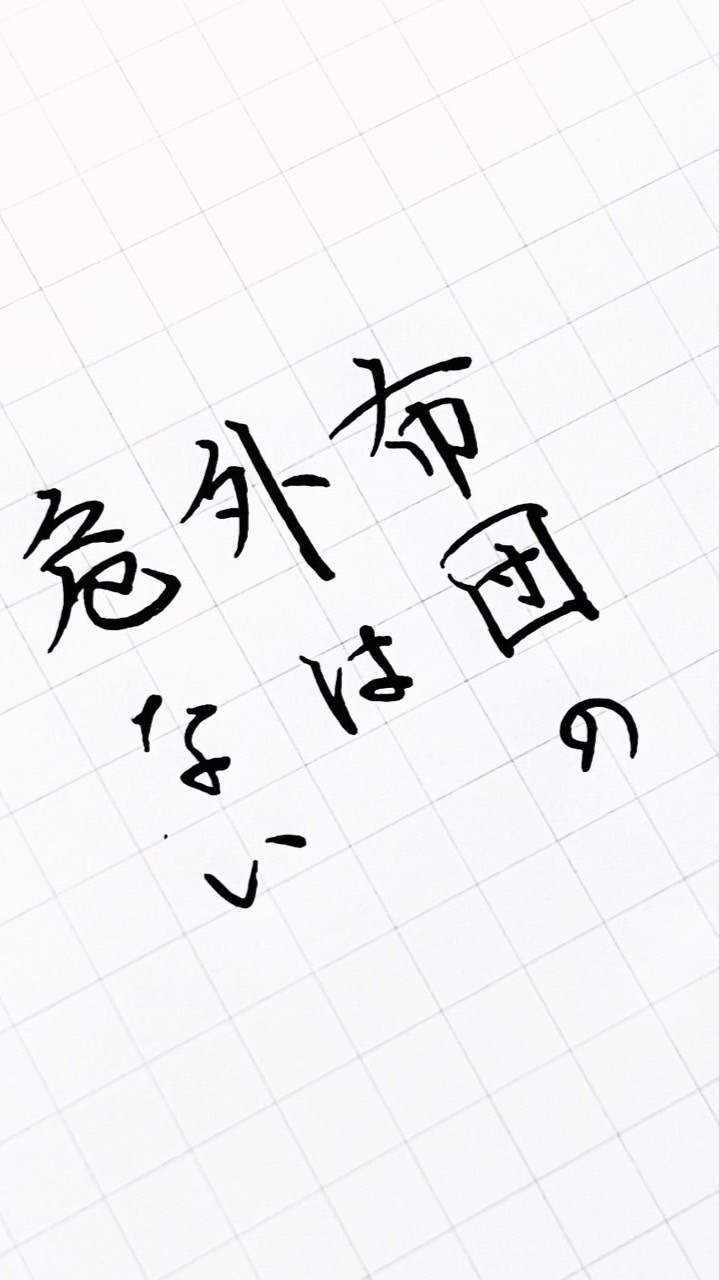 布団の
外は
危ない